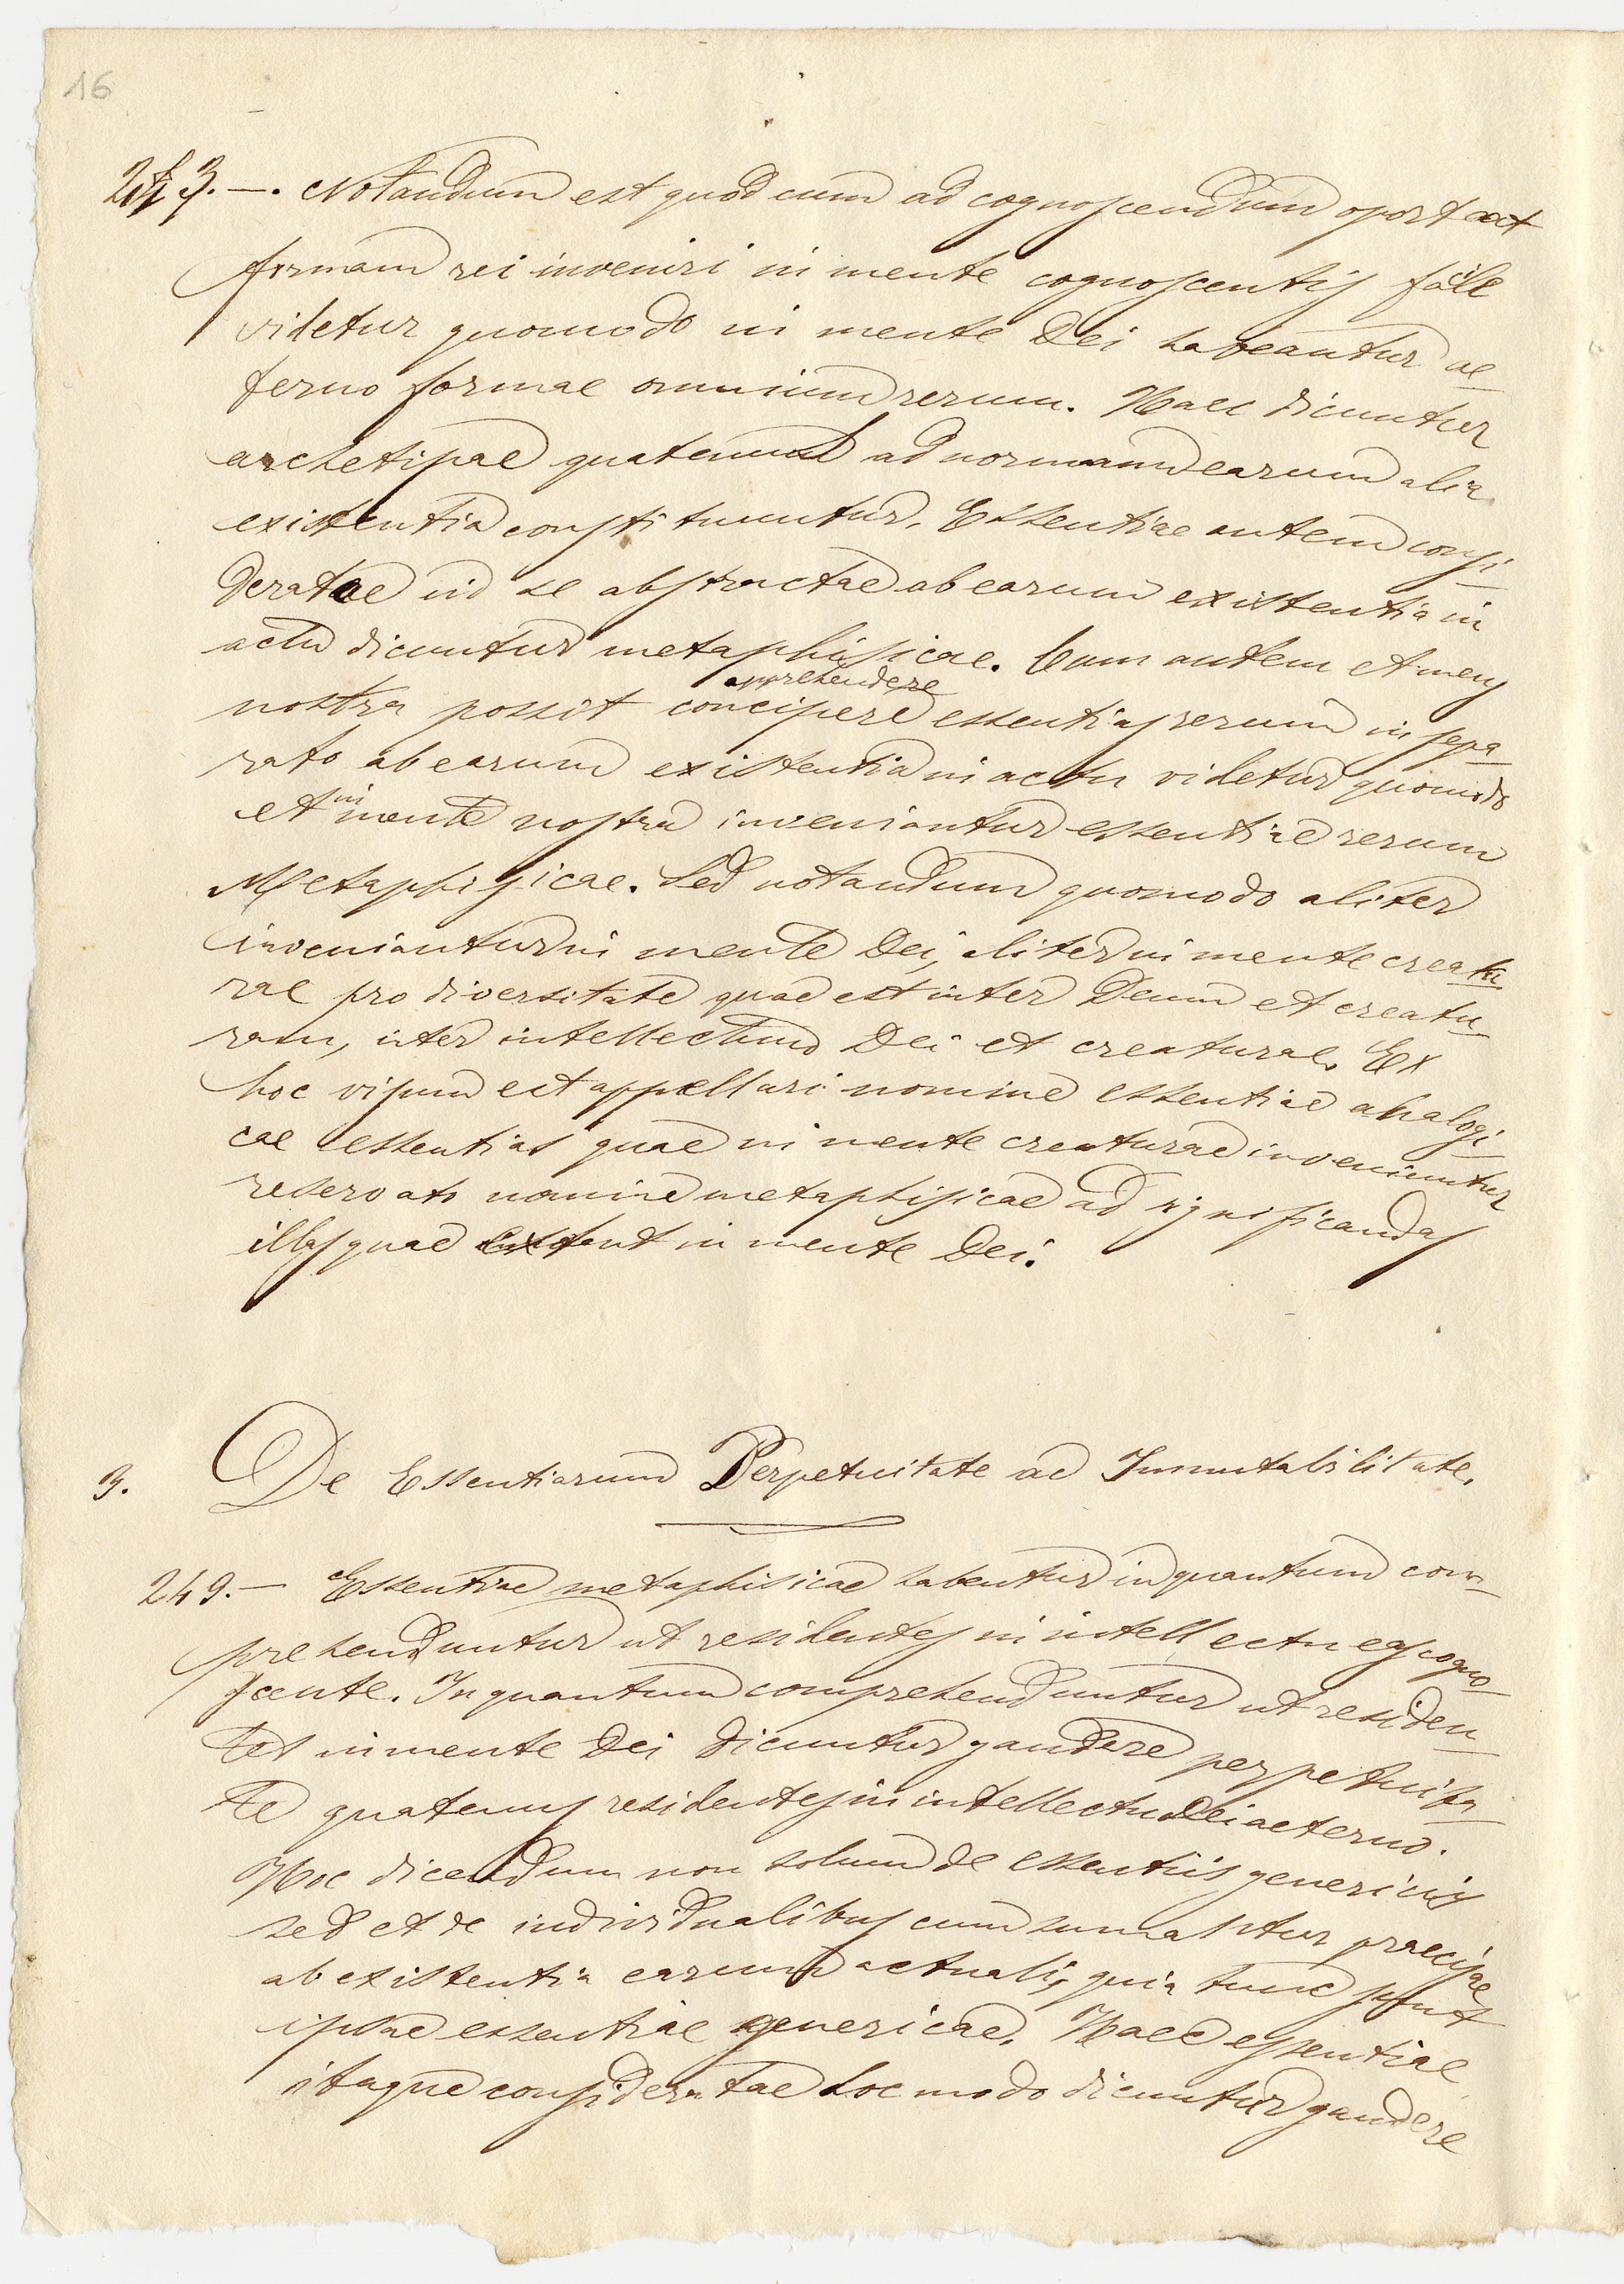 16
243.—. Notandum est quod cum ad cognoscendum oporteat
formam rei inveniri in mente cognoscentis facile
videtur quomodo in mente Dei habeantur ae
terno formae omnium rerum. Haec dicuntur
archetipae quatenus ad normam earum alia
existentia constituuntur. Essentiae autem consi
deratae in se abstractae ab earum existentia in
actu dicuntur metaphisicae. Cum autem et mens
apprehendere
nostra possit concipere essentias rerum in sepa
rato ab earum existentia in actu videtur quomodo
et in mente nostra inveniantur essentiae rerum
Metaphisicae. Sed notandum quomodo aliter
inveniantur in mente Dei, aliter in mente creatu
rae pro diversitate quae est inter Deum et creatu
ram, inter intellectum Dei et creaturae. Ex
hoc visum est appellari nomine essentiae analogi
cae essentias quae in mente creaturae inveniuntur
reservato nomine metaphisicae ad significandas
illas quae extant in mente Dei.
3. De Essentiarum Perpetuitate ac Immutabilitate.
249.— Essentiae metaphisicae habentur inquantum com
prehenduntur ut residentes in intellectu eas cogno
scente. Inquantum comprehenduntur ut residen
tes in mente Dei dicuntur gaudere perpetuita
te quatenus residentes in intellectu Dei aeterno.
Hoc dicendum non solum de essentiis genericis
sed et de individualibus cum sumantur praecise
ab existentia earum actuali, quia tunc sunt
ipsae essentiae genericae. Haec essentiae
itaque consideratae hoc modo dicuntur gaudere